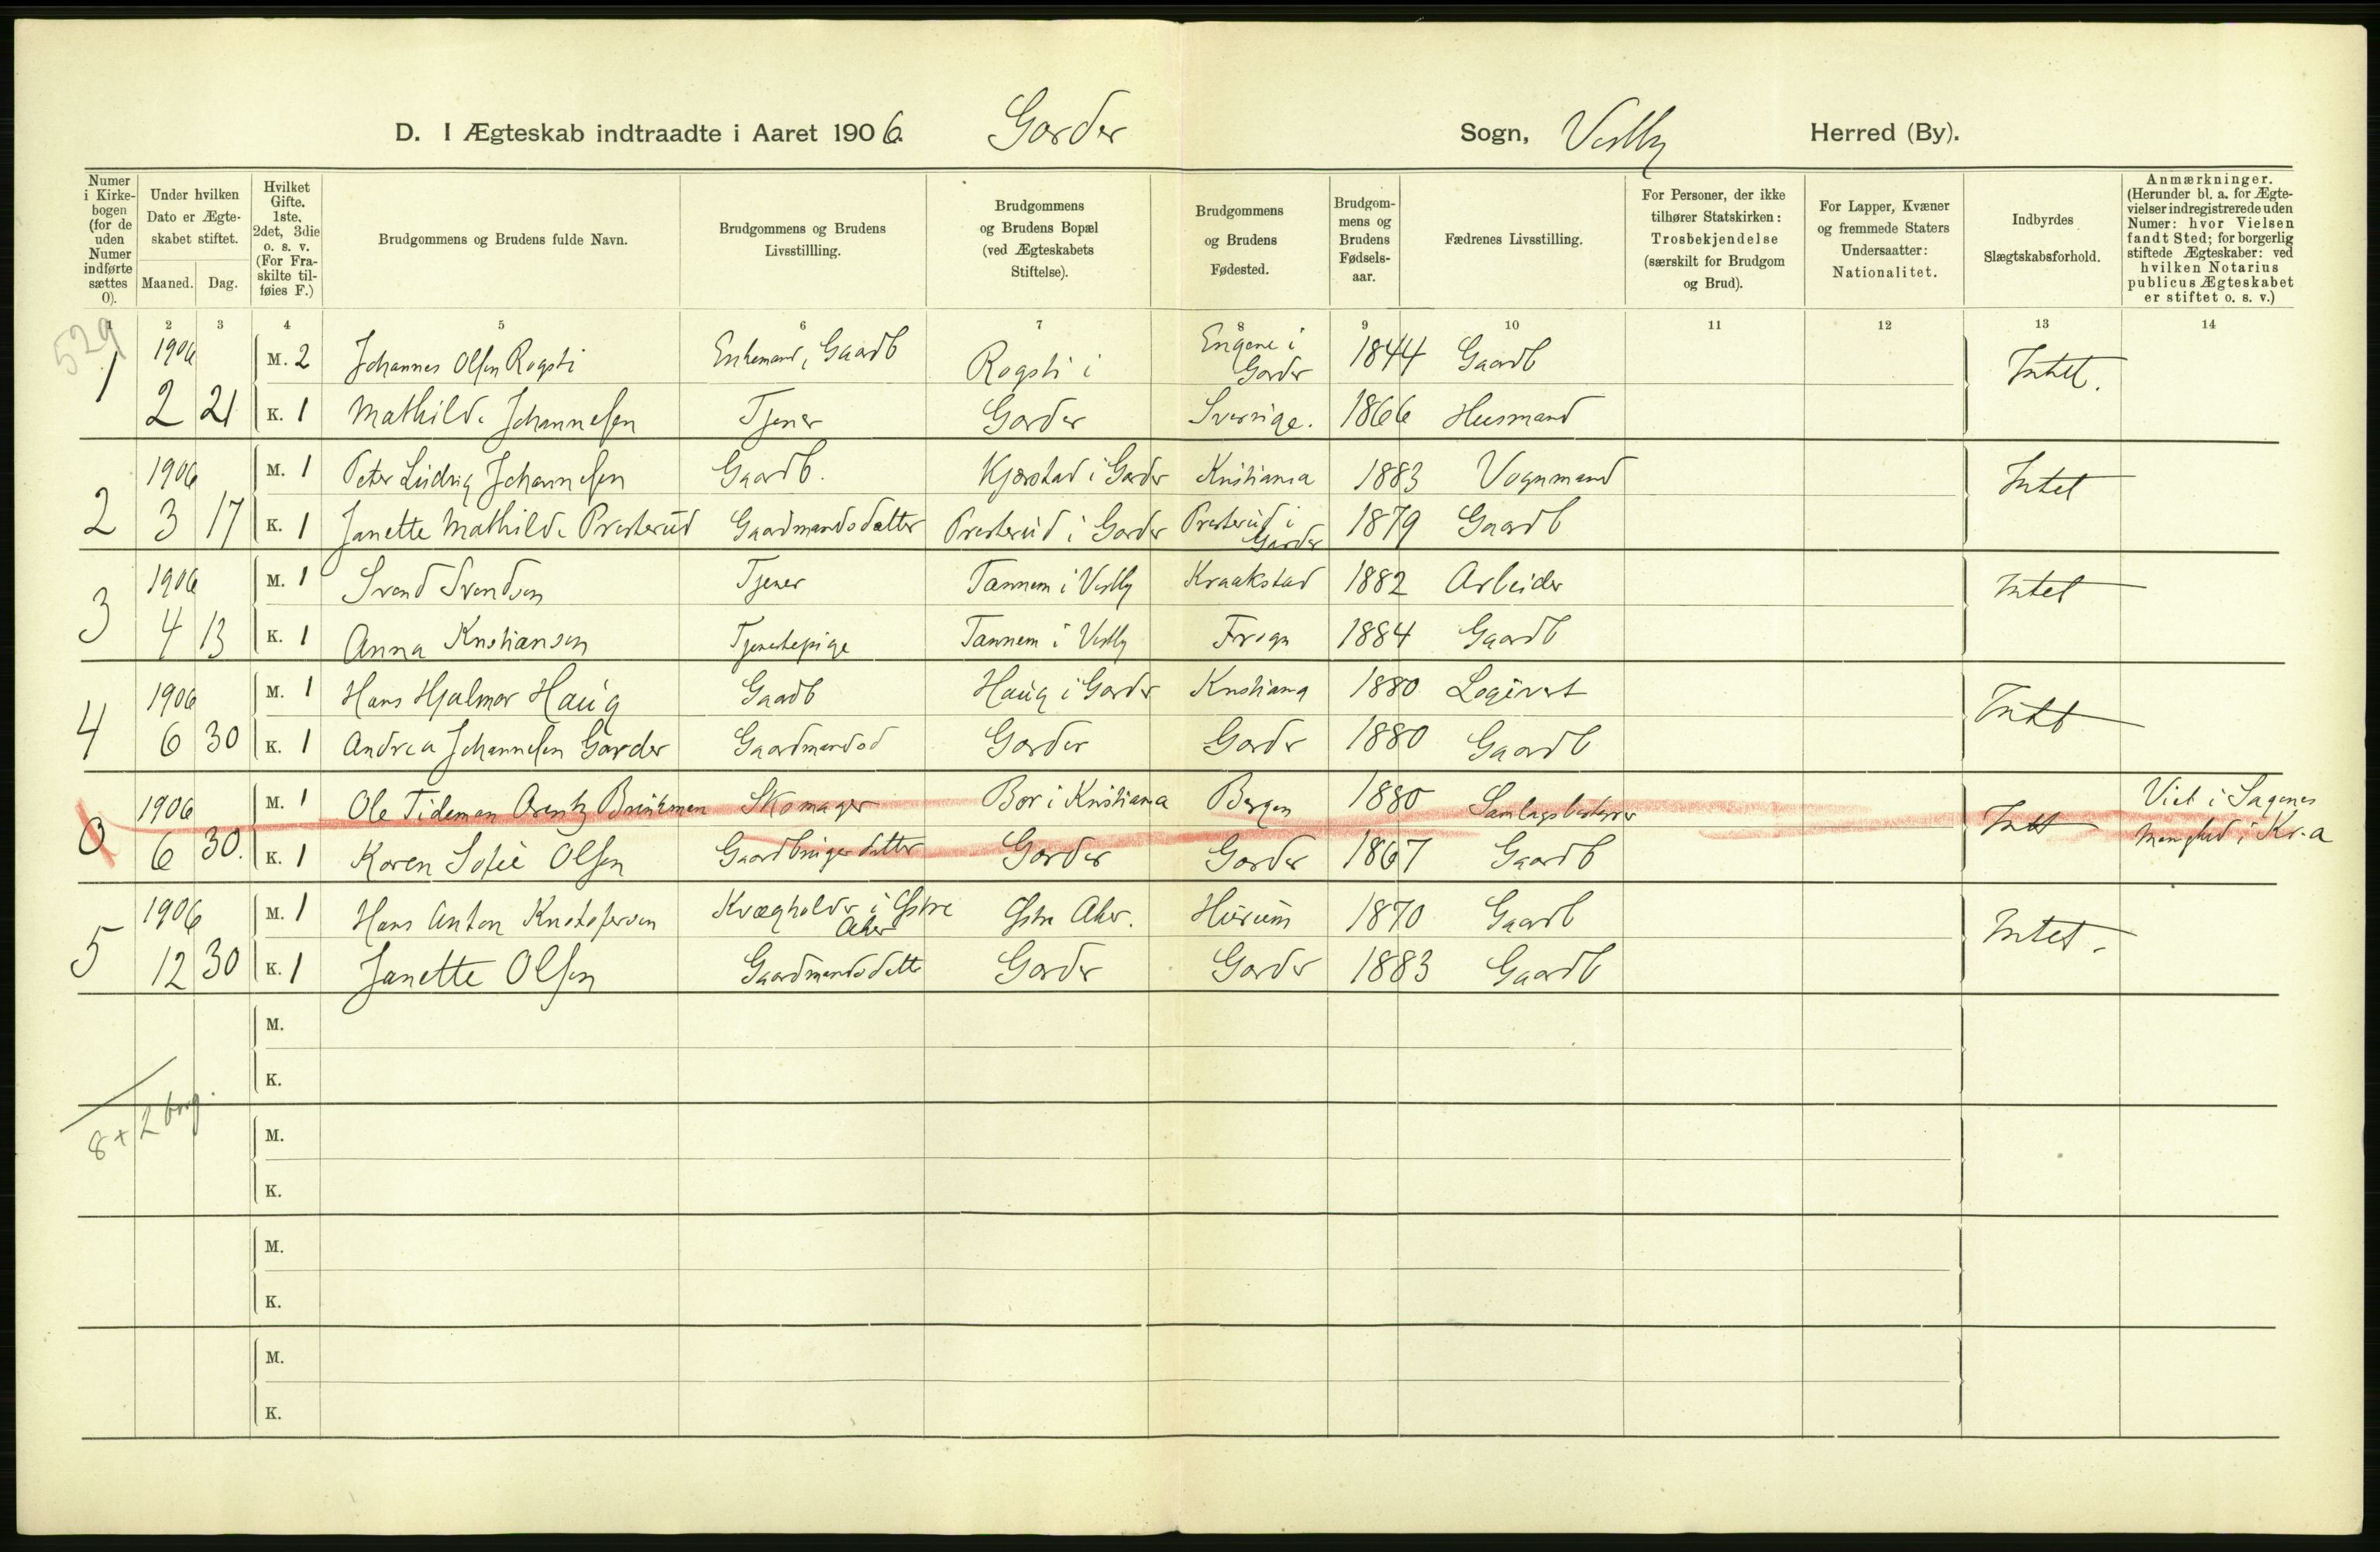 D. I Ægteskab indtraadte i Aaret 1906. Garder Sogn, Vestby Herred (By).
Numer i Kirkebogen (for de uden Numer indførte sættes 0).
Under hvilken Dato er Ægteskabet stiftet.
Maaned. Dag.
Hvilket Gifte. 1ste, 2det, 3die o. s. v. (For Fraskilte tilføies F.)
Brudgommens og Brudens fulde Navn.
Brudgommens og Brudens Livsstillling.
Brudgommens og Brudens Bopæl (ved Ægteskabets Stiftelse).
Brudgommens og Brudens Fødested.
Brudgommens og Brudens Fødselsaar.
Fædrenes Livsstilling.
For Personer, der ikke tilhører Statskirken: Trosbekjendelse (særskilt for Brudgom og Brud).
For Lapper, Kvæner og fremmede Staters Undersaatter: Nationalitet.
Indbyrdes Slægtskabsforhold.
Anmærkninger. (Herunder bl. a. for Ægtevielser indregistrerede uden Numer: hvor Vielsen fandt Sted; for borgerlig stiftede Ægteskaber: ved hvilken Notarius publicus Ægteskabet er stiftet o. s. v.)
1 2 3 4 5 6 7 8 9 10 11 12 13 14
529
1 1906 M. 2 Johannes Olsen Rogsti Enkemand, Gaardb Rogsti i Engene i Garder 1844 Gaardb Intet.
2 21 K. 1 Mathilde Johannesen Tjener Garder Sverrige. 1866 Husmand
2 1906 M. 1 Peter Ludvig Johannesen Gaardb. Kjærstad i Garder Kristiania 1883 Vognmand Intet
3 17 K. 1 Janette Mathilde Presterud Gaardmandsdatter Presterud i Garder Presterud i Garder 1879 Gaardb
3 1906 M. 1 Svend Svendsen Tjener Tannem i Vestby Kraakstad 1882 Arbeider Intet
4 13 K. 1 Anna Kristiansen Tjenestepige Tannem i Vestby Frogn 1884 Gaardb
4 1906 M. 1 Hans Hjalmar Haug Gaardb Haug i Garder Kristiania 1880 Logivert Intet
6 30 K. 1 Andrea Johannesen Garder Gaardmandsd Garder Garder 1880 Gaardb
0 1906 M. 1 Ole Tideman Arentz Brinkman Skomager Bor i Kristiania Bergen 1880 Samlagsbestyrer Intet Viet i Sagenes
6 30. K. 1 Karen Sofie Olsen Gaardbrugerdatter Garder Garder 1867 Gaardb Menighed i Kr.a
5 1906 M. 1 Hans Anton Kristofersen Kvægholder i Østre Aker Østre Aker. Hurum 1870 Gaardb Intet.
12 30 K. 1 Janette Olsen Gaardmandsdatter Garder Garder 1883 Gaardb
M.
K.
8 + 2 borg.
M.
K.
M.
K.
M.
K.